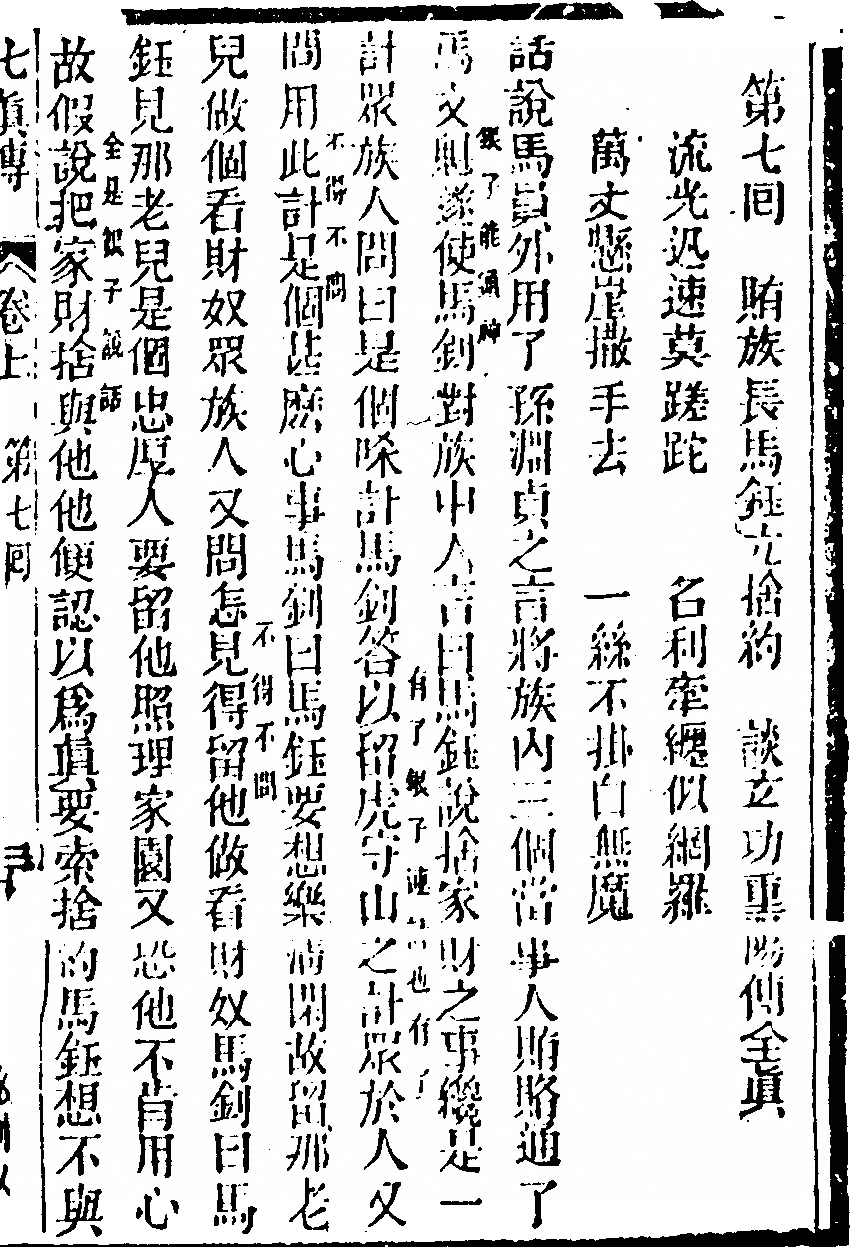 第七囘　賄族長馬鈺立捨約　談立功重陽傳全眞
流光迅速莫蹉跎　名利牽纏似網羅
萬丈懸崖撒手去　一絲不掛自無魔
話說馬員外用了孫淵貞之言將族內三個當事人賄賂通了
銀了能通神
馬文魁遂使馬釗對族中人言曰馬鈺說捨家財之事纔是一
有了銀子連話也有了
計眾族人問曰是個啥計馬釗答以留虎守山之計眾於人又
不得不問
問用此計是個甚麽心事馬釗曰馬鈺要想樂清閑故留那老
不得不問
兒做個看財奴眾族人又問怎見得留他做看財奴馬釗曰馬
鈺見那老兒是個忠厚人要留他照理家園又恐他不肯用心
全是銀子說話
故假說把家財捨與他他便認以爲眞要索捨約馬鈺想不與
七眞傳　卷上　第七囘